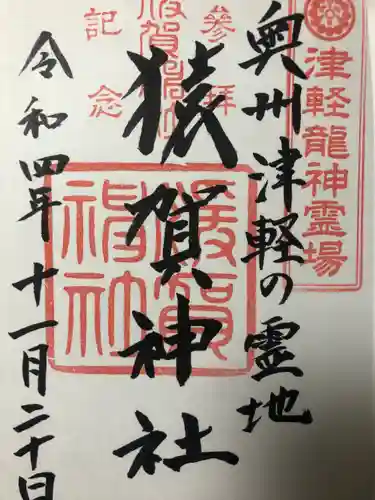 津軽龍神霊場
奥州津軽の霊地
参拝
記念
猿賀神社
猿賀神社
令和四年十一月二十日